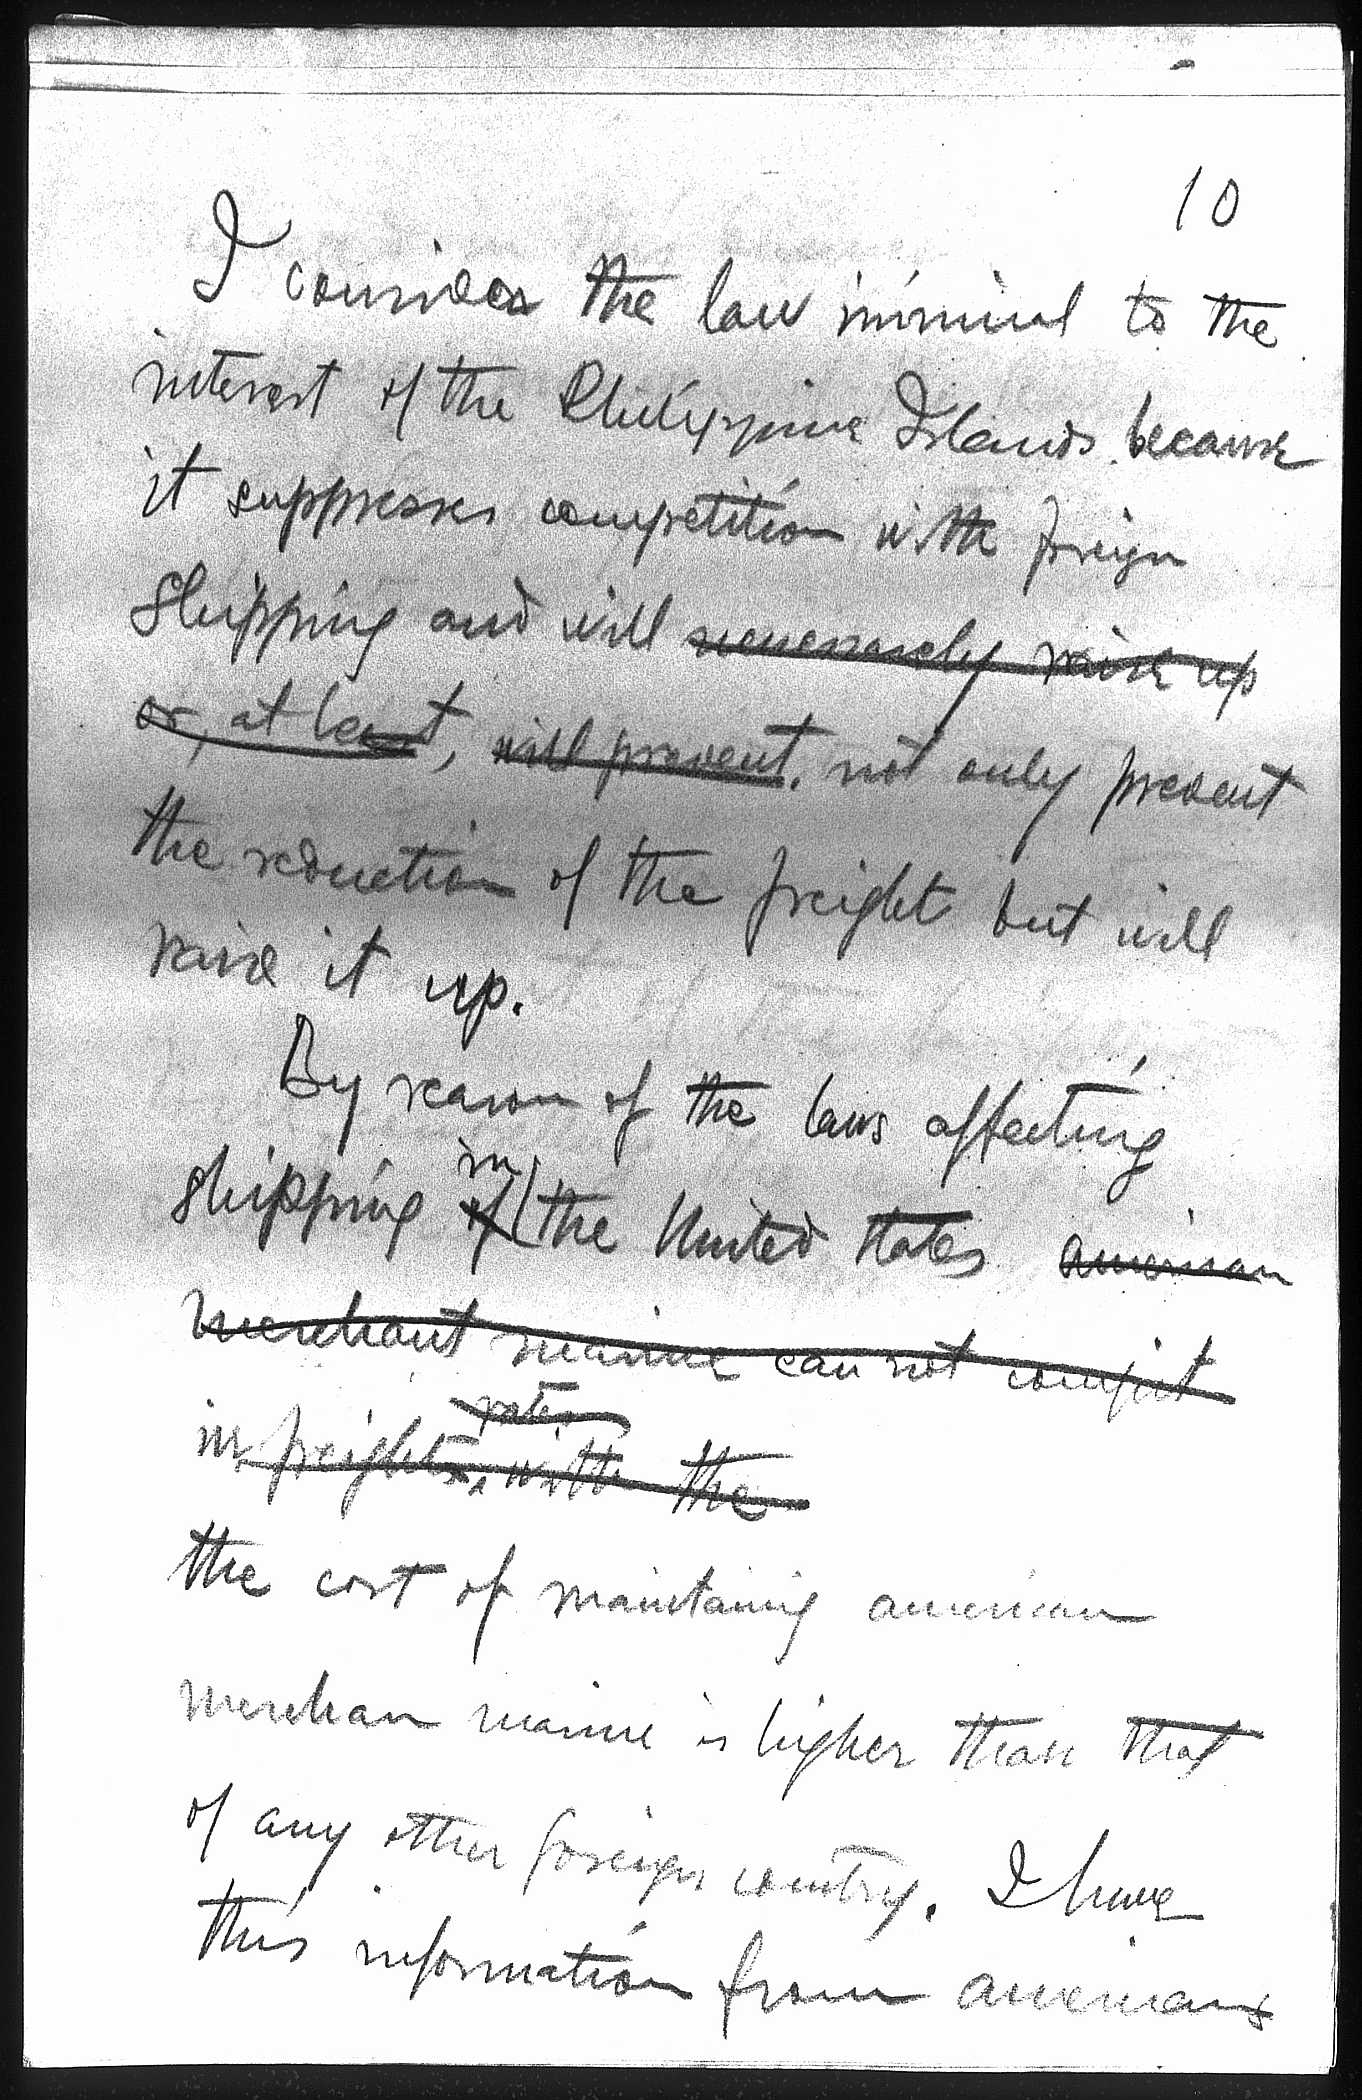 10
I consider the law inimical to the
interest of the Philippine Islands because
it suppresses competition with foreign
shipping and will necessarely raise up
or, at least, will prevent, not only prevent
the reduction of the freight but will
raise it up.
By reason of the laws affecting
in
shipping of the United States american
merchant marine can not compit
rates
in freights, with the
the cost of maintaining american
merchan marine is higher than that
of any other foreign country. I have
this information from americans